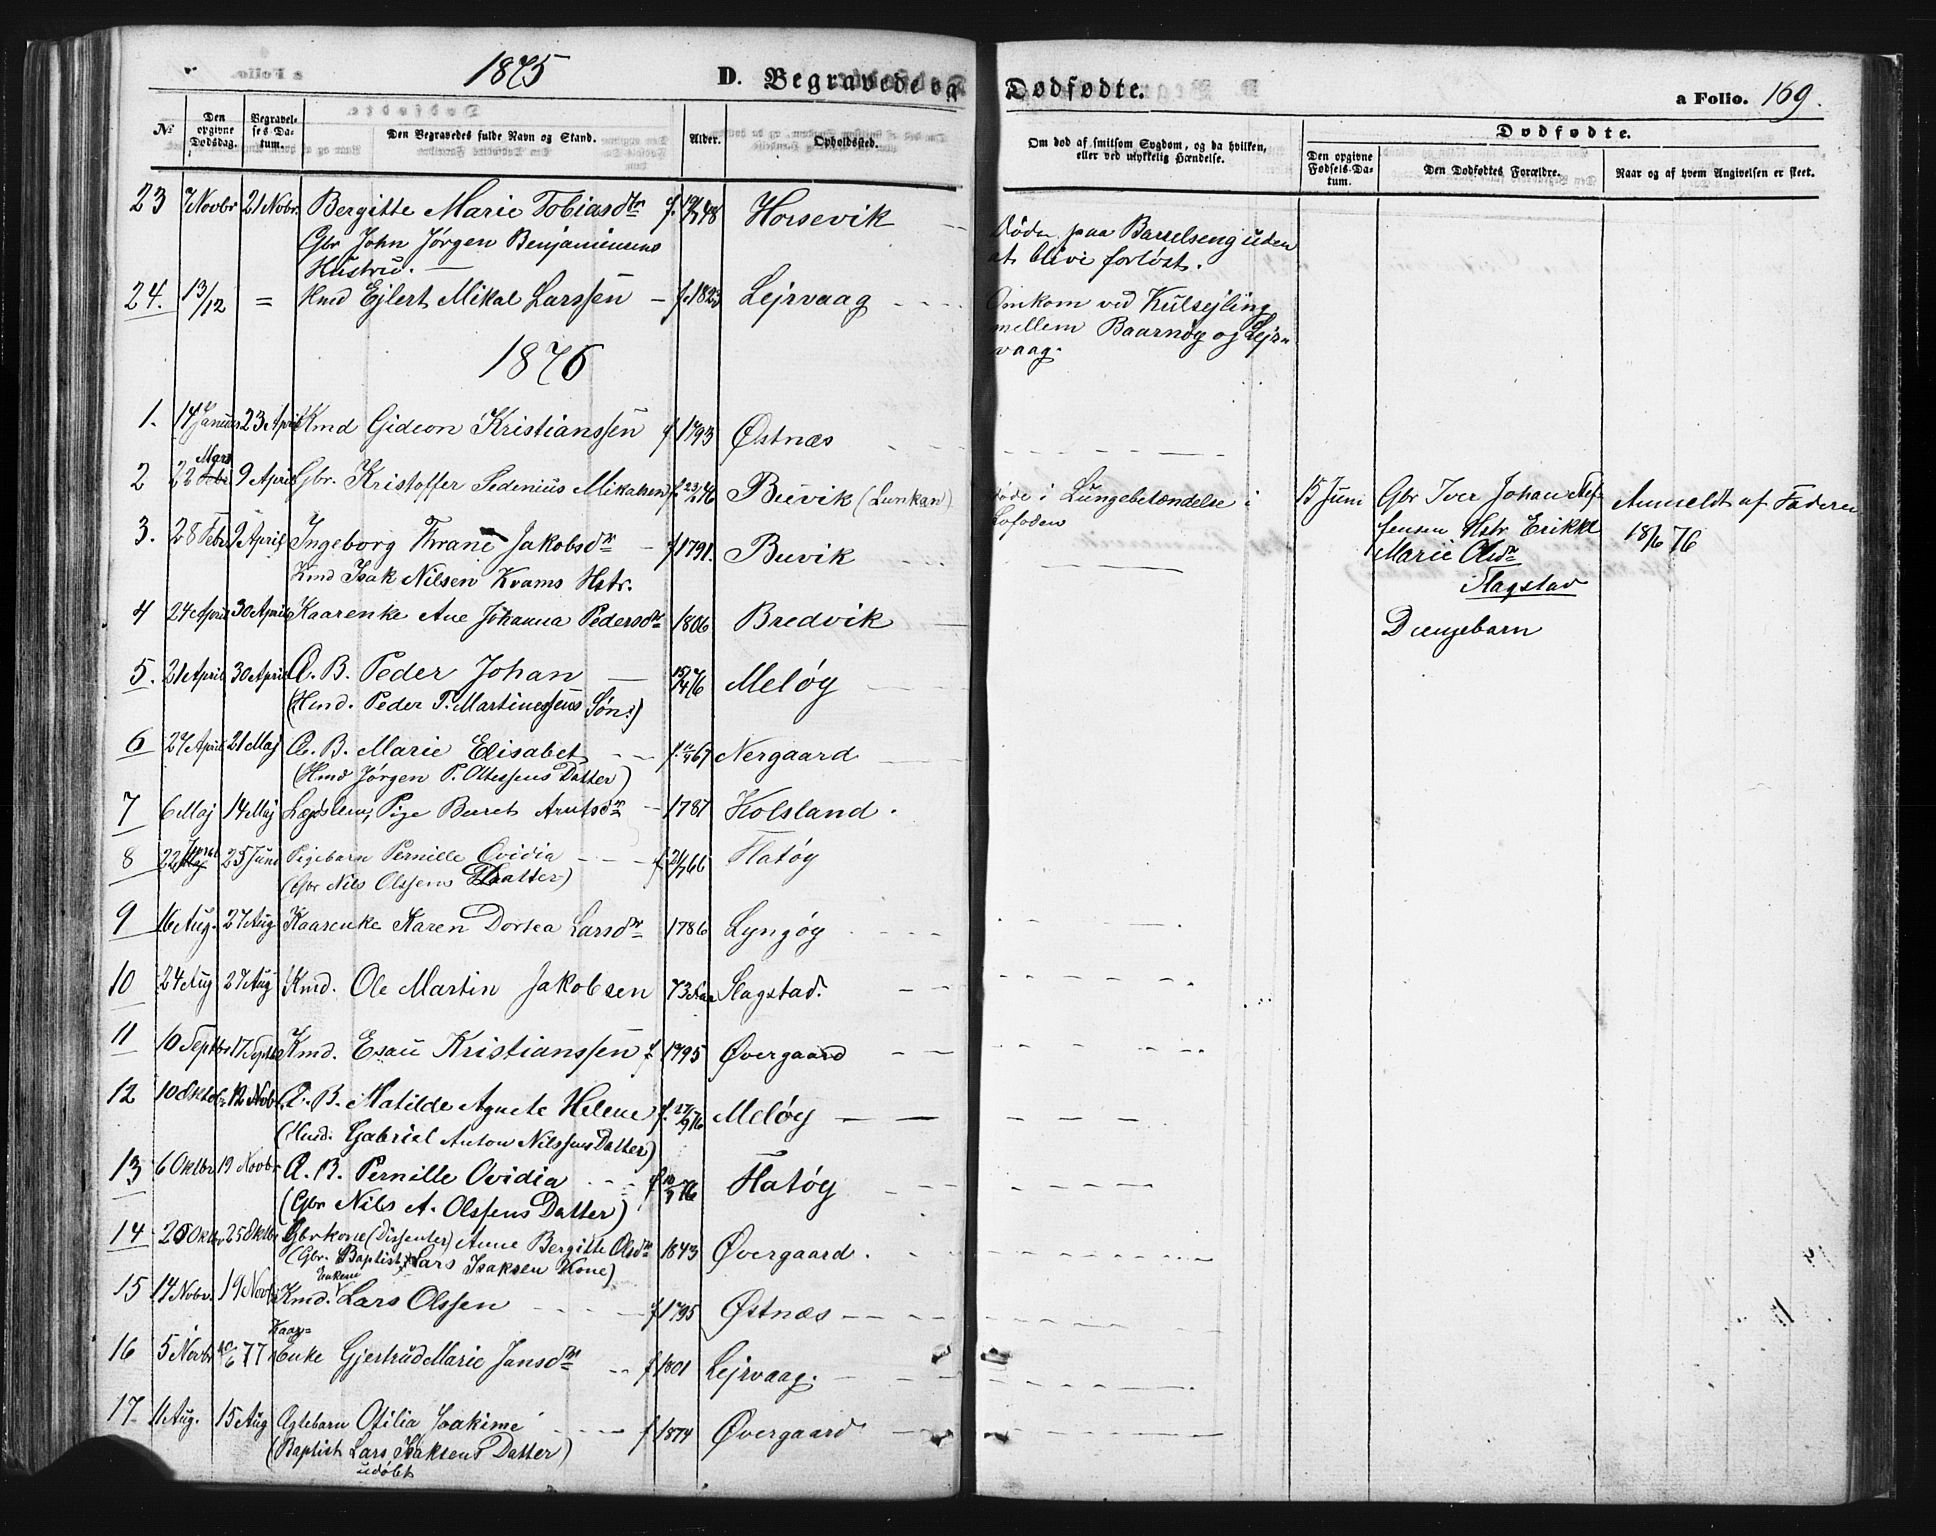 1875
D. Begravede og Dødfødte.
a Folio. 169.
№
Den opgivne Dødsdag.
Begravelses Datum.
Den Begravedes fulde Navn og Stand.
Alder.
Opholdssted.
Om død af smitsom Sygdom, og da hvilken, eller ved ulykkelig Hændelse.
Dødfødte.
Den opgivne Fødsels-Datum.
Den Dødfødtes Forældre.
Naar og af hvem Angivelsen er skeet.
23 7 Novbr 21 Nobr. Bergitte Marie Tobiasdtr f. 48 Horsevik
Gbr John Jørgen Benjaminsens
Hustru. —
Døde paa Barselseng uden
at blive forløst.
24. 13/12 = Kmd Ejlert Mikal Larssen — f. 1823 Lejrvaag
Omkom ved Kulsejling
mellem Baarnøy og Lejr-
vaag.
1876
1. 14 Januar 23 April Kmd Gideon Kristianssen f 1793 Østnæs
2 22 Mars Febr 9 April Gbr. Kristoffer Sedenius Mikalsen f. 46 Buvik (Lunkan)
Døde i Lungebetændelse i
Lofoden
3. 28 Febr 9 April Ingeborg Thrane Jakobsdr — f 1791. Buvik
Kmd Isak Nilsen Kvams Hstr.
15 Juni Gbr Iver Johan Stef-
fensen Hstr Erikke
Marie Olsdr
Slagstad
Drengebarn
Anmeldt af Faderen
18/6 76
4 24 April 30 April Kaarenke Ane Johanna Pedersdr 1806 Bredvik
5. 21 April 30 April Æ. B. Peder Johan — 15/4 76 Meløy
(Hmd. Peder P. Martinussens Søn.)
6 27 April 21 Maj Æ. B. Marie Elisabet f. 67 Nergaard
(Hmd Jørgen P. Ottessens Datter)
7 6 Maj 14 Maj Lægdslem, Pige Beret Arntsdr — 1787 Kolsland.
8 22 25 Juni Pigebarn Pernille Ovidia f 66 Flatøy
(Gbr Nils Olssens Datter)
9 16 Aug. 27 Aug Kaarenke Karen Dortea Larsdr 1786 Lyngøy
10 24 Aug 27 Aug Kmd. Ole Martin Jakobsen 73 Aar Slagstad.
11 10 Septbr 17 Septbr Kmd. Esau Kristianssen f. 1795 Øvergaard
12 10 Oktob. 12 Nobr. Æ. B. Matilde Agnete Helene f. 27/9 76 Meløy
(Hmd. Gabriel Anton Nilssens Datter)
13 6 Oktbr 19 Novbr Æ. B. Pernille Ovidia f 76 Flatøy
(Gbr Nils A. Olssens Datter)
14 20 Oktbr 25 Oktbr Gbrkone (Dissenter) Anne Bergitte Olsdr 1843 Øvergaard.
(Gbr. Baptist Lars Isaksen Kone)
15 14 Nobr. 19 Novbr Kmd. Enkem Lars Olssen f 1795 Østnæs
16 5 Novbr 10/6 77 Kaar=
enke Gjertrud Marie Jansdr f 1801 Lejrvaag.
17 11 Aug. 15 Aug Ægtebarn Otilia Joakime f 1874 Øvergaard
(Baptist Lars Isaksens Datter)
udøbt